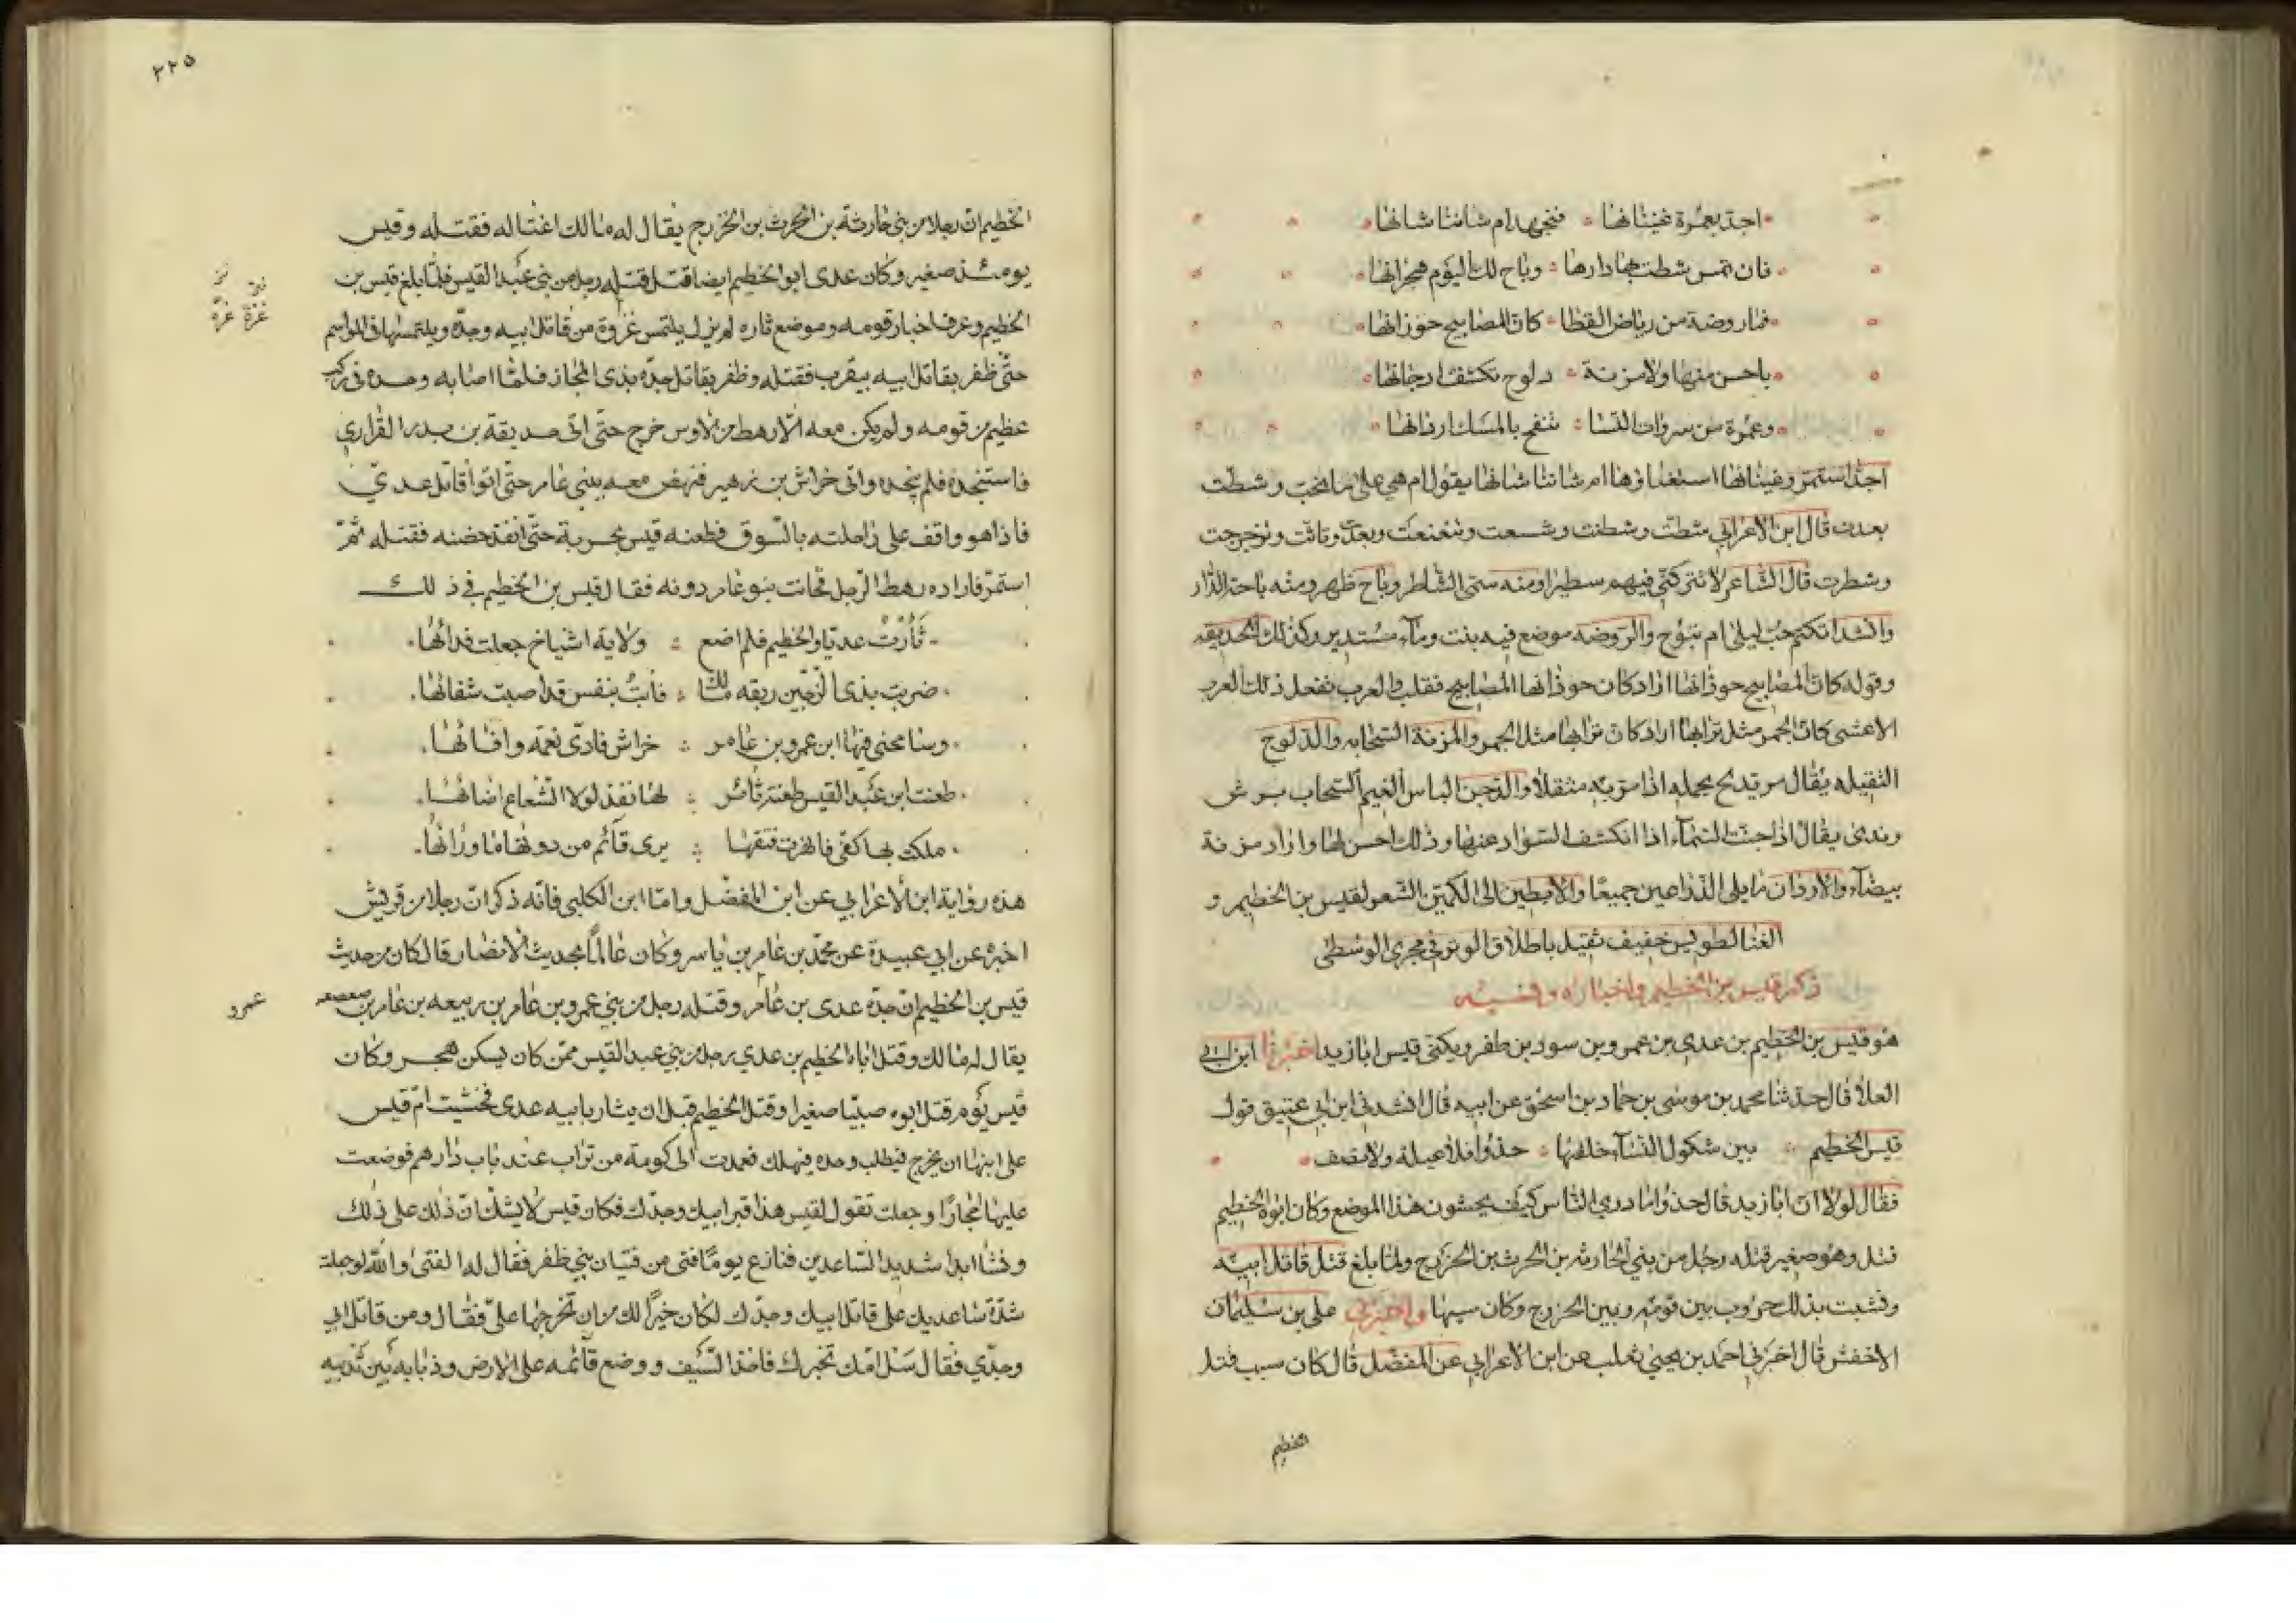 اجدّ بعمرة غنيانها فتهجر ام شاننا شانها
فان تمس شطت بها دارها وباح لك اليوم هجرانها
فما روضة من رياض القطا كانّ المصابيح حوذانها
باحسن منها ولا مزنة دلوح تكشف ادجانها
وعمرة من سروات النسا تنفح بالمسك اردانها
اجدّ استمرّ وغينانها استغناؤها ام شاننا شانها يقول ام هي على ما نحب وشطّت
بعدت قال ابن الاعرابي شطّت وشطنت وشسعت وتشعشعت وبعدت ونات وتزحزحت
وشطرت قال الشاعر لا تتركنّي فيهم سطيرا ومنه سمّى الشّاطر وباح ظهر ومنه باحة الدّار
وانشد اتكتم حبّ ليلى ام تبوح والرّوضه موضع فيه بنت ومآء مستدير وكذلك الحديقه
وقوله كانّ المصابيح حوذانها اراد كان حوذانها المصابيح فقلب والعرب تفعل ذلك العرب
الاعشى كانّ الجمر مثل ترابها اراد كان ترابها مثل الجمر والمزنة السّحابه والدّلوح
الثقيله يقال مر يدلح بحمله اذا مرّ به مثقلا والدّجن الباس الغيم السّحاب برش
وندى يقال اذا جنت السّمآء اذا انكشف السّواد عنها وذلك احسن لها واراد مزنة
بيضآء والاردان ما يلى الذّراعين جميعا والابطين الى الكمّين الشّعر لقيس بن الخطيم و
الغنا لطويس خفيف ثقيل باطلاق الوتر في مجرى الوسطى
ذكر قيس بن الخطيم واخباره ونسبه
هو قيس بن الخطيم بن عدي بن عمرو بن سود بن ظفر ويكنى قيس ابا زيد اخبرنا ابن ابي
العلا قال حدثنا محمد بن موسى بن حماد بن اسحق عن ابيه قال انشدني ابن ابي عتيق قول
قيس الخطيم بين شكول النّسآء خلقها حذوا فلا عيلة ولا نصف
فقال لولا انّ ابا زيد قال حذوا ما درى النّاس كيف يحشون هذا الموضع وكان ابوه الخطيم
قتل وهو صغير قتله رجل من بني الحارثه بن الحرث بن الخزرج ولما بلغ قتل قاتل ابيه
ونشبت بذلك حروب بين قومه وبين الخزرج وكان سببها واخبرني على بن سليمان
الاخفش قال اخبرني احمد بن يحيى ثعلب عن ابن الاعرابي عن المفضّل قال كان سبب قتل
الخطيم
٢٢٥
الخطيم انّ رجلا من بني حارثة بن الحرث بن الخزرج يقال له مالك اغتاله فقتله وقيس
يومئذ صغير وكان عدى ابو الخطيم ايضا قتل قتله رجل من بني عبد القيس فلمّا بلغ قيس بن
الخطيم وعرف اخبار قومه وموضع ثاره لم يزل يلتمس غزوة من قاتل ابيه وجدّه ويلتمسها في المواسم
غزة غرة
حتّى ظفر بقاتل ابيه بيثرب فقتله وظفر بقاتل جدّه بذى المجاز فلمّا اصابه وجده في ركب
عظيم من قومه ولم يكن معه الّا رهط من الاوس خرج حتّى اتى حديقة بن بدر الفزاري
فاستنجده فلم ينجده واتى خراش بن زهير فنهض معه ببني عامر حتّى اتوا قاتل عديّ
فاذا هو واقف على راحلته بالسّوق فطعنه قيس بحربة حتّى انفذ حضنه فقتله ثمّ
استمرّ فاراده رهط الرّجل فحالت بنو عامر دونه فقال قيس بن الخطيم في ذلك
ثأرت عديّا والخطيم فلم اضع ولاية اشياخ جعلت فدائها
ضربت بذى الزّجّين ربقه مالك فأبت بنفس قد اصبت شفائها
وسامحنى فيها ابن عمرو بن عامر خراش فادّى نعمه وافائها
طعنت ابن عبد القيس طعنة ثائر لها نفذ لولا الشّعاع اضائها
ملكت بها كفّى فانهزت فتقها يرى قآئم من دونها ما ورائها
هذه رواية ابن الاعرابي عن ابن المفضّل وامّا ابن الكلبى فانّه ذكر انّ رجلا من قريش
اخبره عن ابي عبيدة عن محمّد بن عامر بن ياسر وكان عالمًا بحديث الانصار قال كان من حديث
قيس بن الخطيم انّ جدّه عدى بن عامر وقتله رجل من بني عمرو بن عامر بن ربيعه بن عامر بن صعصعه
عمرو
يقال له مالك وقتل اباه الخطيم بن عدي رجل من بني عبد القيس ممّن كان يسكن هجر وكان
قيس يوم قتل ابوه صبيّا صغيرا وقتل الخطيم قبل ان يثار بابيه عدى فخشيت امّ قيس
على ابنها ان يخرج فيطلب وحده فيهلك فعمدت الى كومة من تراب عند باب دارهم فوضعت
عليها احجارًا وجعلت تقول لقيس هذا قبر ابيك وجدّك فكان قيس لا يشكّ انّ ذلك على ذلك
ونشا ايدا شديد السّاعدين فنازع يومًا فتى من فتيان بني ظفر فقال له الفتى والله لو جعلت
شدّة ساعديك على قاتل ابيك وجدّك لكان خيرًا لك من ان تخرجها علىّ فقال ومن قاتل ابي
وجدّي فقال سل امّك تخبرك فاخذ السّيف ووضع قآئمه على الارض وذبابه بين ثدييه